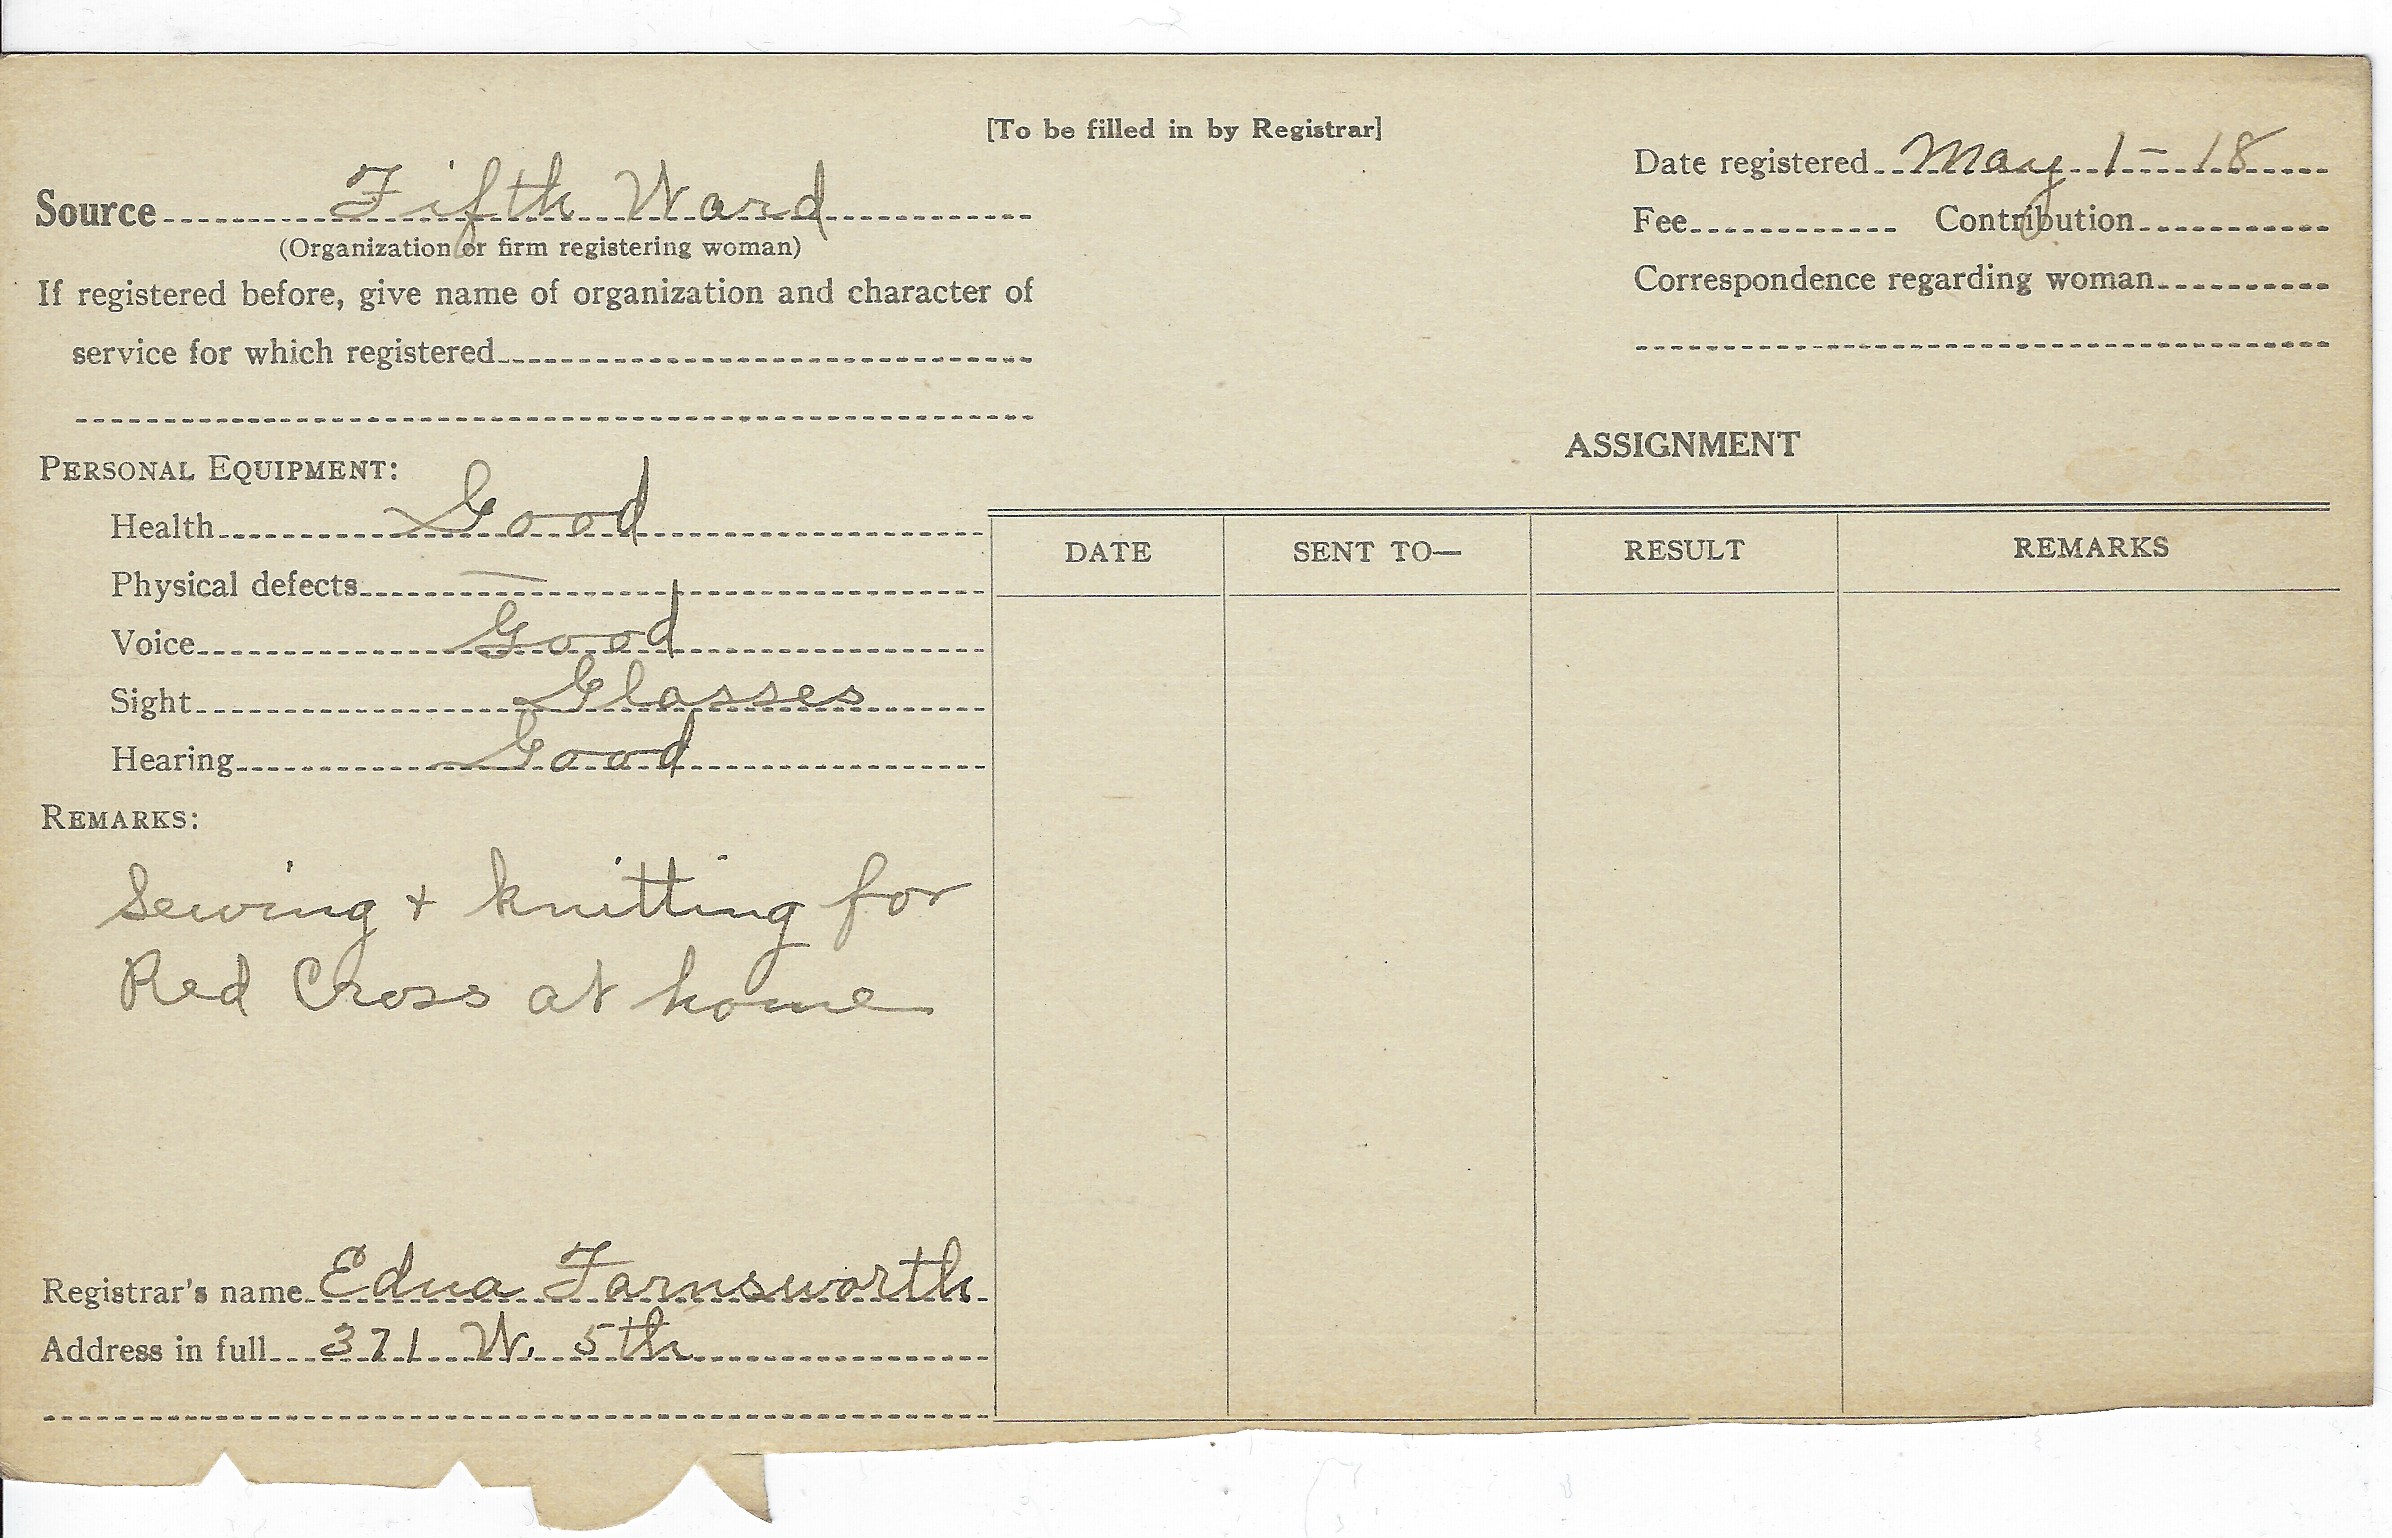 [To be filled in by Registrar]
Date registered May 1 - 18
Source Fifth Ward
(Organization or firm registering woman)
Fee Contribution
If registered before, give name of organization and character of
Correspondence regarding woman
service for which registered
ASSIGNMENT
PERSONAL EQUIPMENT:
Health Good
Physical defects —
Voice Good
Sight Glasses
Hearing Good
DATE SENT TO— RESULT REMARKS
REMARKS:
Sewing + knitting for
Red Cross at home
Registrar's name Edna Farnsworth
Address in full 371 W. 5th